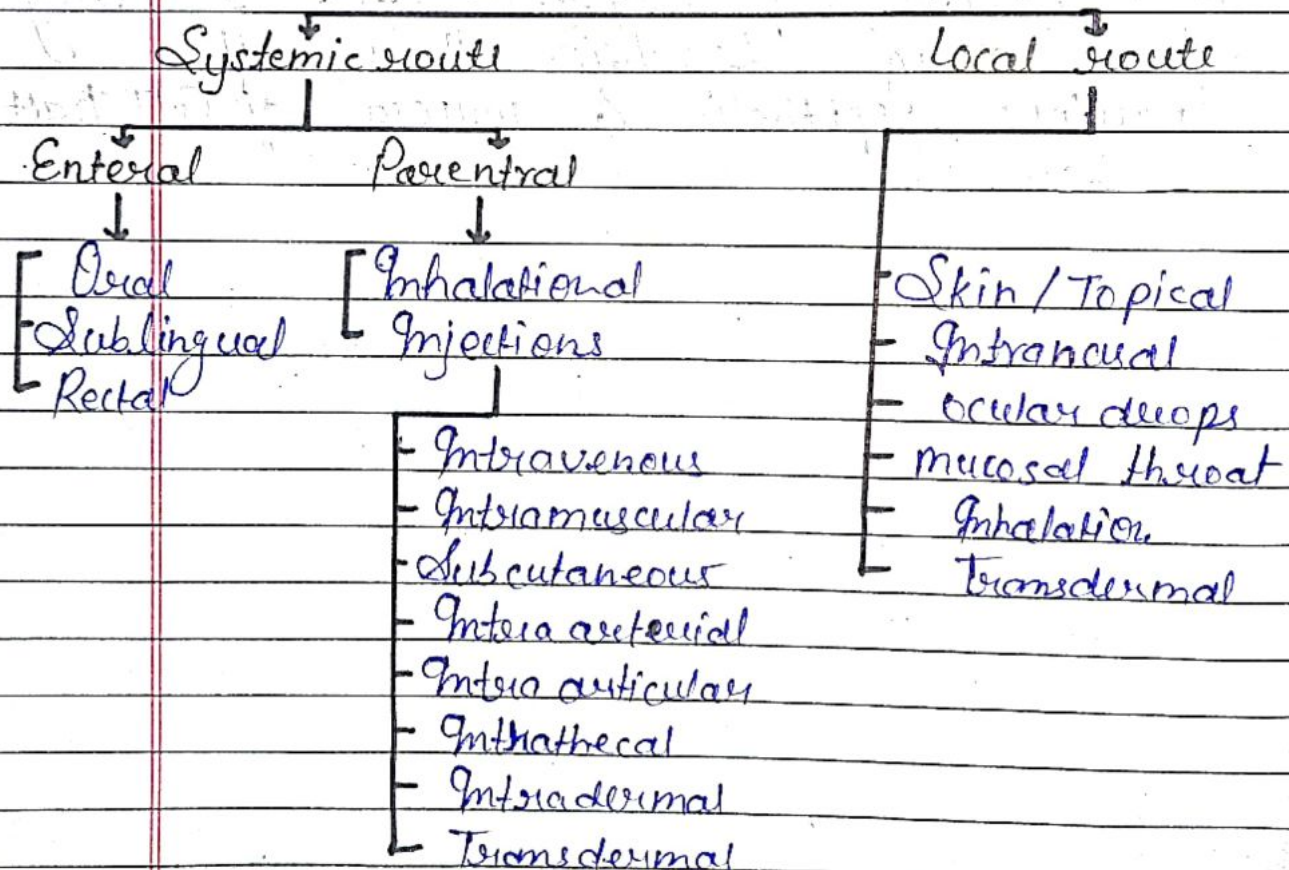 Systemic route Local route
Enteral Parentral
Oral
Sublingual
Rectal
Inhalational
Injections
Intravenous
Intramuscular
Subcutaneous
Intra arterial
Intra articular
Inthathecal
Intradermal
Transdermal
Skin / Topical
Intranasal
ocular drops
mucosal throat
Inhalation
Transdermal